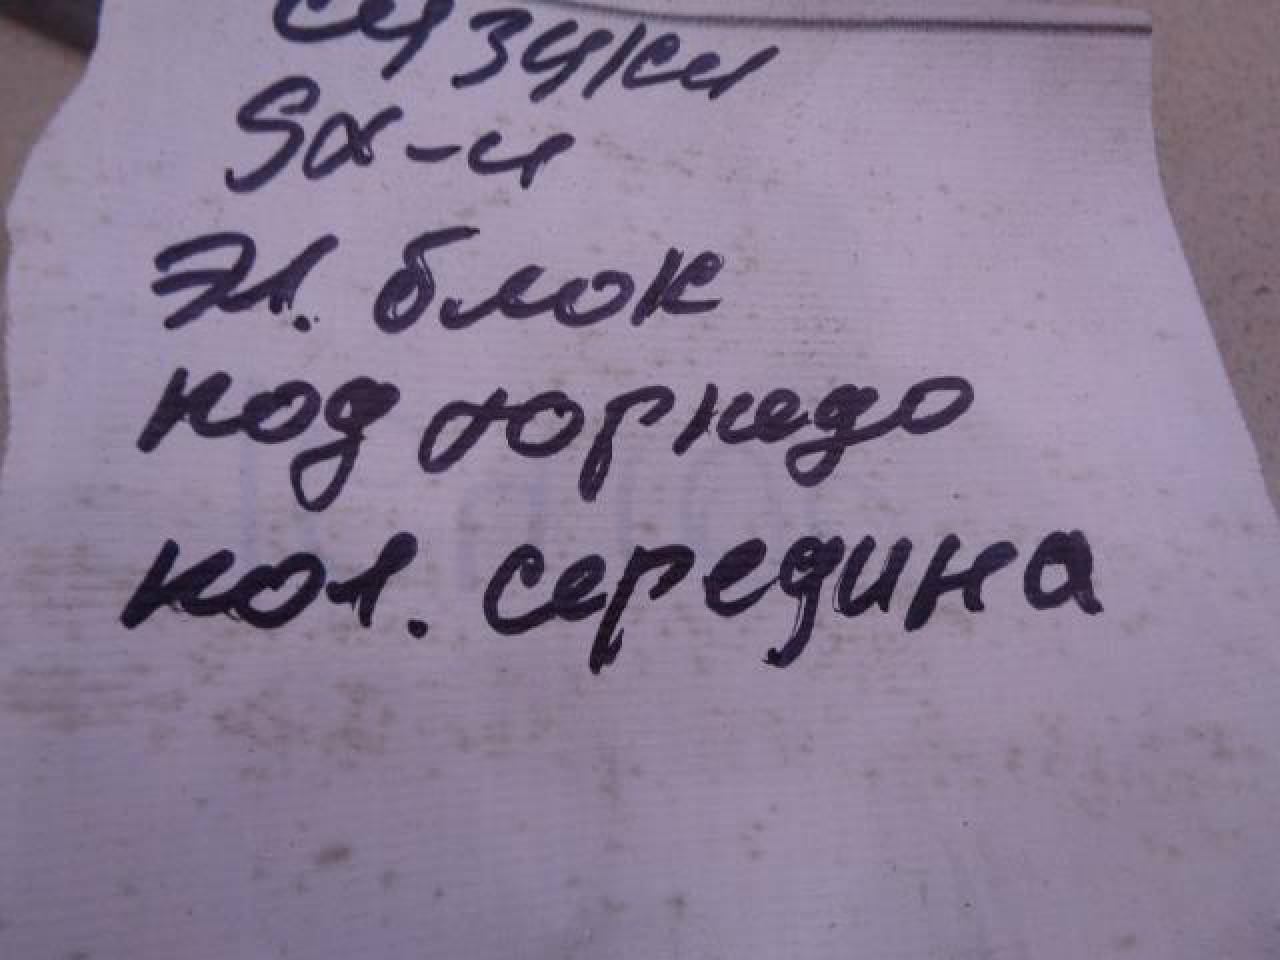 сузуки
Sx-4
Эл. блок
под торпедо
кол. середина